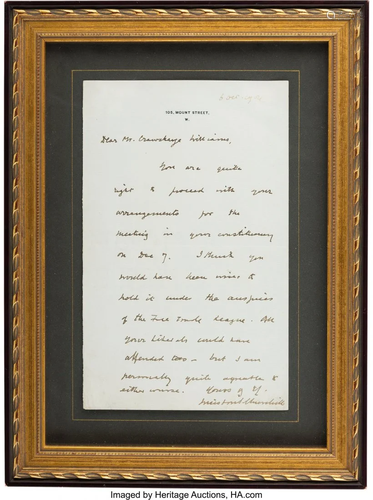 105, MOUNT STREET,
W.
Dear Mr. Crawshay Williams,
You are quite
right to proceed with your
arrangements for the
meeting in your constituency
on Dec 7. I think you
would have been wise to
hold it under the auspices
of the Free Trade League. All
your Liberals could have
attended too – but I am
personally quite agreeable to
either course. Yours
Winston S. Churchill
Imaged by Heritage Auctions, HA.com